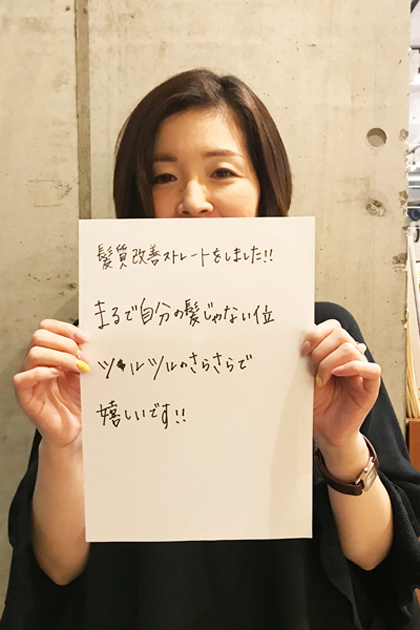 髪質改善ストレートをしました!!
まるで自分の髪じゃない位
ツルツルのさらさらで
嬉しいです!!